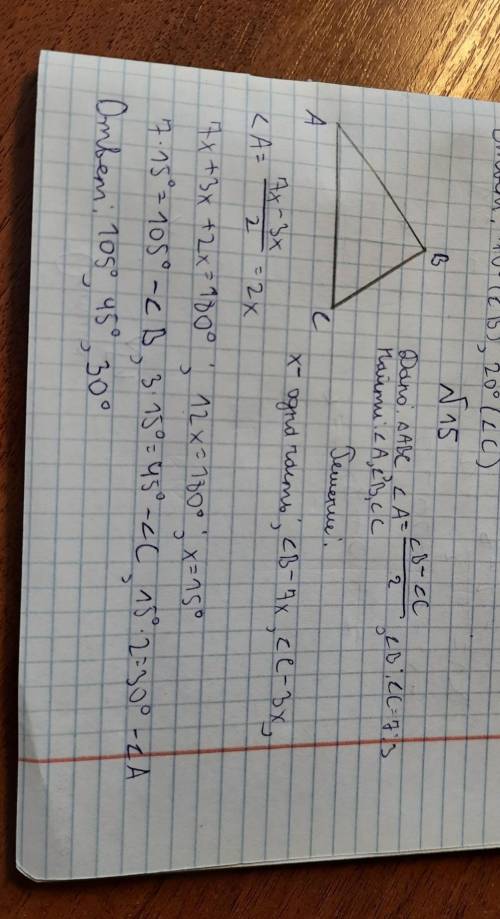 20° (∠C)
№15
A
B
C
Дано: △ABC, ∠A = (∠B - ∠C)/2, ∠B:∠C = 7:3
Найти: ∠A, ∠B, ∠C
Решение:
x - одна часть, ∠B - 7x, ∠C - 3x,
∠A = (7x - 3x)/2 = 2x
7x + 3x + 2x = 180°; 12x = 180°; x = 15°
7·15° = 105° - ∠B, 3·15° = 45° - ∠C, 15°·2 = 30° - ∠A
Ответ: 105°, 45°, 30°